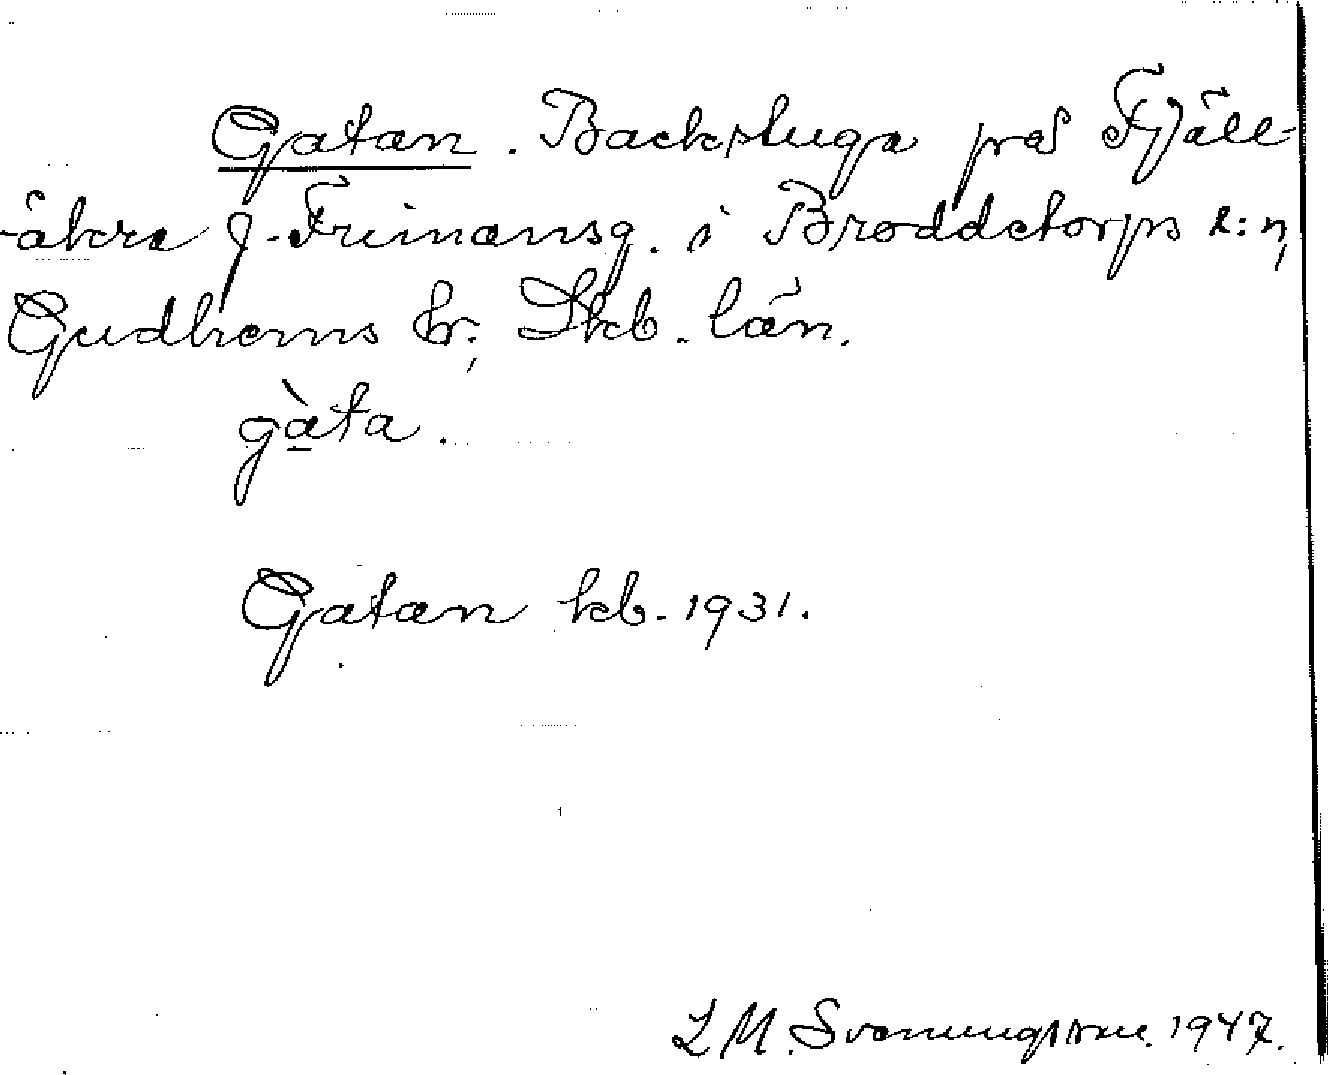 Gatan. Backstuga på Fjäll-
-åkra J.-Frimansg. i Broddetorps s:n,
Gudhems hr., Skb. län.
gàta.
Gatan kb. 1931.
L M. Svenungsson. 1947.